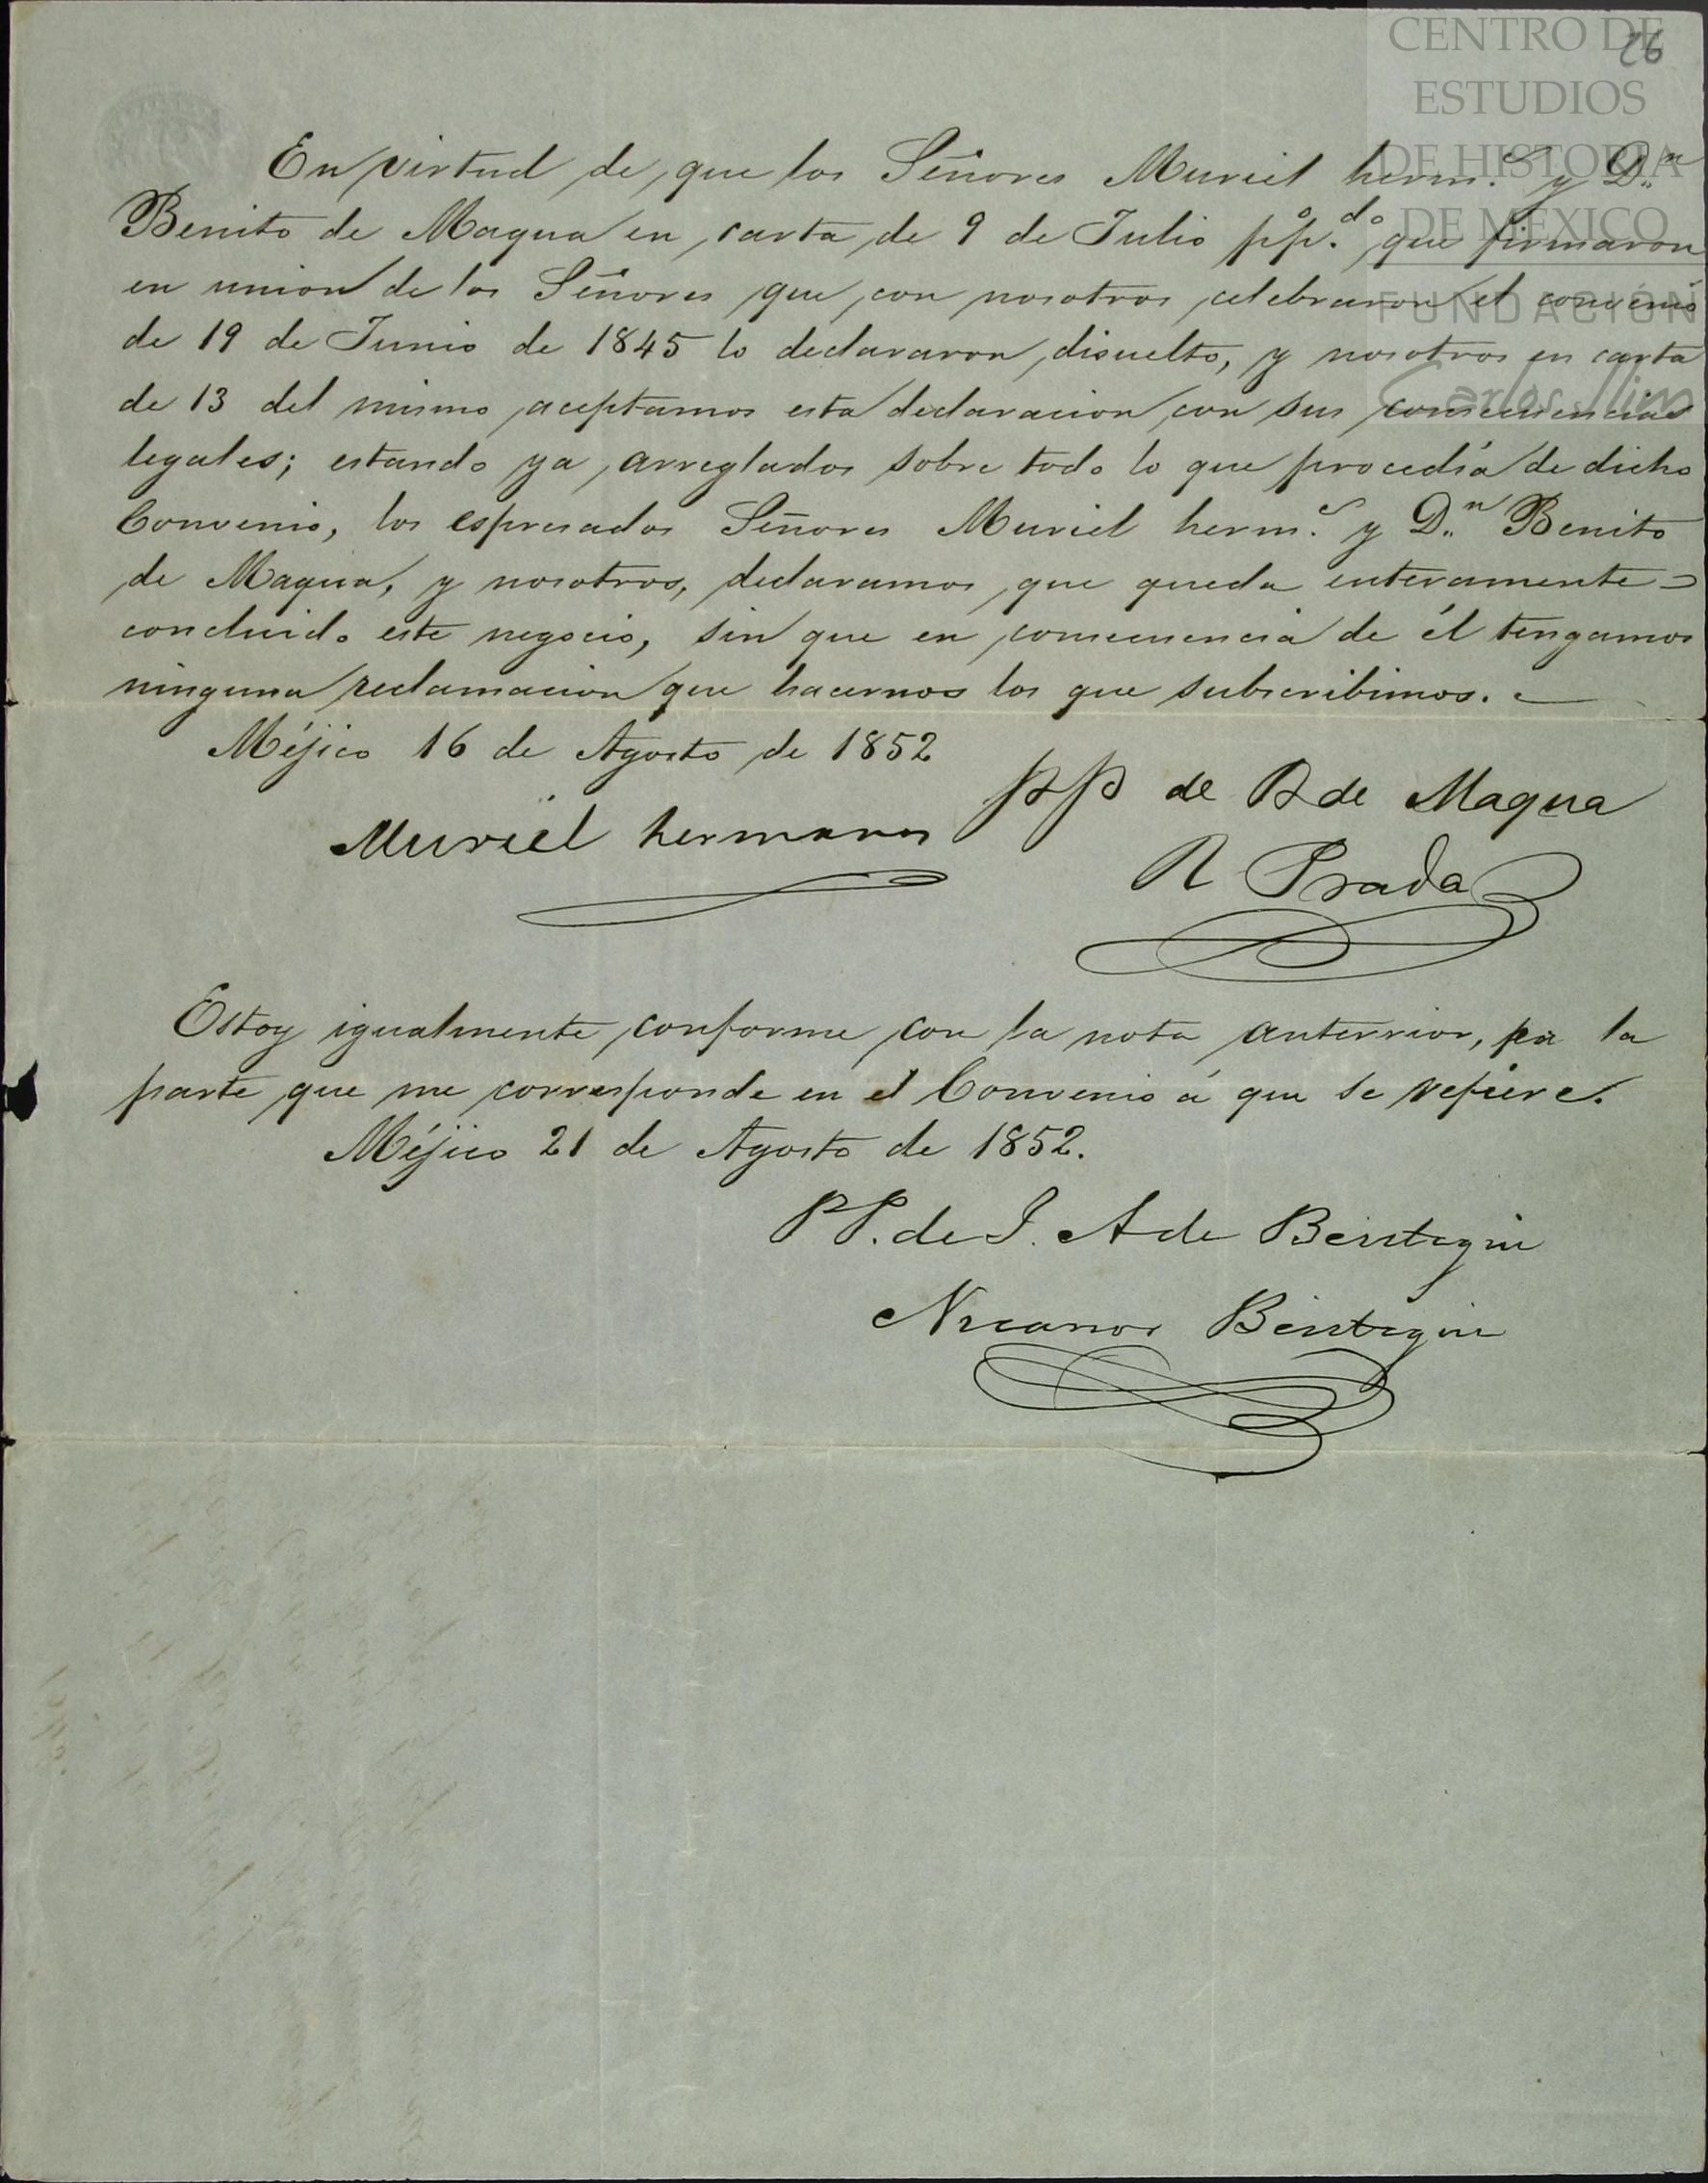 26
CENTRO DE
ESTUDIOS
DE HISTORIA
DE MÉXICO
FUNDACIÓN
Carlos Slim
En virtud de que los Señores Muriel herm.s y D.n
Benito de Maqua en carta de 9 de Julio p.o p.do que firmaron
en union de los Señores que con nosotros celebraron el convenio
de 19 de Junio de 1845 lo declararon disuelto, y nosotros en carta
de 13 del mismo aceptamos esta declaracion con sus consecuencias
legales; estando ya arreglados sobre todo lo que procedía de dicho
Convenio, los espresados Señores Muriel herm.s y D.n Benito
de Maqua, y nosotros, declaramos que queda enteramente =
concluido este negocio, sin que en consecuencia de él tengamos
ninguna reclamacion que hacernos los que subscribimos. —
Méjico 16 de Agosto de 1852
Muriel hermanos
pp de B de Maqua
R Prada
Estoy igualmente conforme con la nota anterrior, por la
parte que me corresponde en el Convenio á que se refiere.
Méjico 21 de Agosto de 1852.
PP. de J. A de Beistegui
Nicanor Beistegui